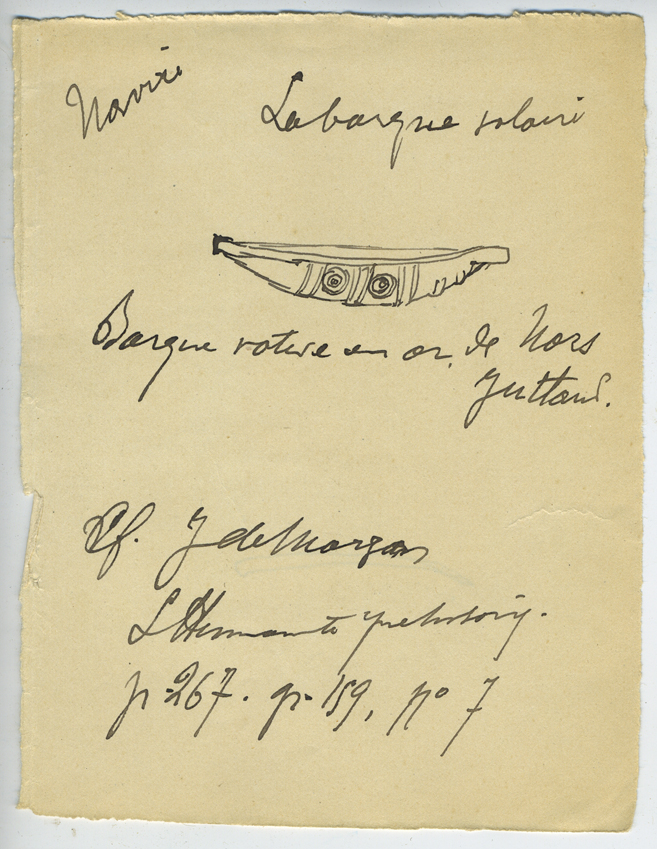 Navire
La barque solaire
Barque votive en or, de Nors
Jutland.
Cf. J de Morgan
L'Humanité préhistoriq.
p. 267. p. 159, no 7